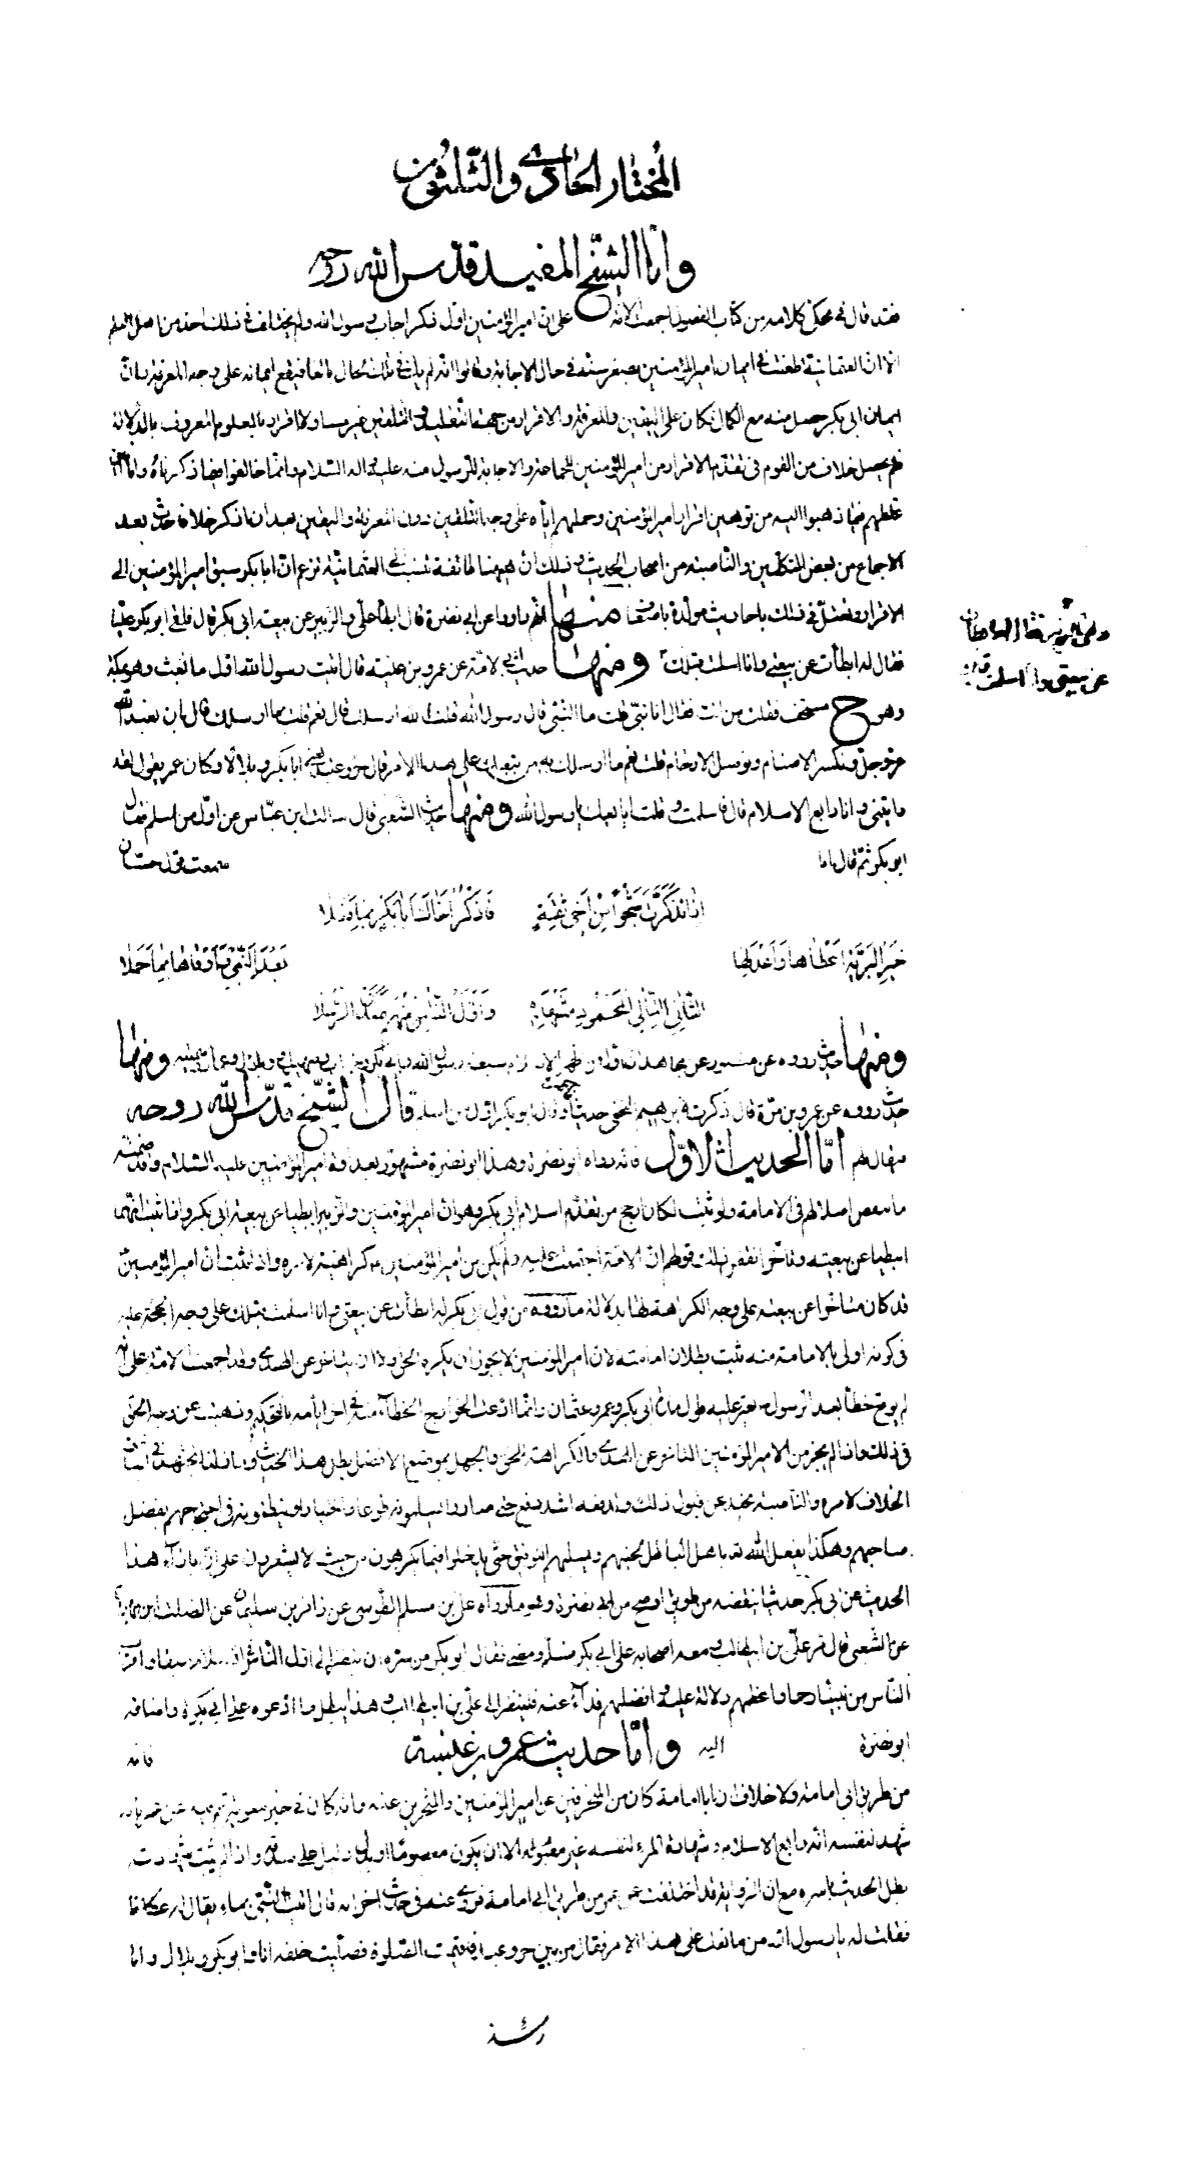 المختار الحادي والثلثون من
واما الشيخ المفيد قدس الله روحه
فقد قال في محكي كلامه من كتاب الفصول اجمعت الامة على ان امير المؤمنين اول ذكر اجاب رسول الله ولم يختلف في ذلك احد من اهل العلم
الا ان العثمانية طعنت في ايمان امير المؤمنين بصغر سنه في حال الاجابة وقالوا انه لم يك في تلك الحال بالغا فيقع ايمانه على وجه المعرفة وان
ايمان ابي بكر حصل منه مع الكمال فكان على اليقين والمعرفة والاقرار من جهة التقليد والتلقين غير مساو للاقرار بالمعلوم المعروف بالدلالة
فلم يحصل خلاف من القوم في تقدم الاقرار من امير المؤمنين للجماعة والاجابة للرسول منه عليه واله السلام وانما خالفوا فيما ذكرناه وانا
غلطهم فيما ذهبوا اليه من توهين اقرار امير المؤمنين وحملهم اياه على وجه التلقين دون المعرفة واليقين بعد ان اذكر خلافا حدث بعد
الاجماع من بعض المتكلمين والناصبة من اصحاب الحديث وذلك ان ههنا طائفة تنسب الى العثمانية تزعم ان ابا بكر سبق امير المؤمنين الى
الاقرار وتعتل في ذلك باحاديث مولدة باضعاف منها انهم رووا عن ابي نضرة قال ابطأ علي والزبير عن بيعة ابي بكر قال فلقى ابو بكر عليا
فقال له ابطأت عن بيعتي وانا اسلمت قبلك ومنها حديث ابي امامة عن عمرو بن عنبسة قال اتيت رسول الله اول ما بعث وهو بمكة
وهو ح مستخف فقلت من انت فقال انا نبي قلت ما النبي قال رسول الله قلت الله ارسلك قال نعم قلت بما ارسلك قال بان نعبد الله
عز وجل ونكسر الاصنام ونوصل الارحام قلت نعم ما ارسلك به من تبعك على هذا الامر قال حر وعبد يعني ابا بكر وبلالا وكان عمر يقول لقد
رايتني وانا رابع الاسلام قال فاسلمت وقلت ابايعك يا رسول الله ومنها حديث الشعبي قال سالت ابن عباس عن اول من اسلم فقال
ابو بكر ثم قال اما سمعت قول حسان
اذا تذكرت شجوا من اخي ثقة فاذكر اخاك ابا بكر بما فعلا
خير البرية اعطاها واعدلها بعد النبي واوفاها بما حملا
الثاني التالي المحمود مشهده واول الناس منهم صدق الرسلا
ومنها حديث رووه عن منصور عن مجاهد ان اول من اظهر الاسلام سبعة رسول الله وابو بكر وخباب وصهيب وبلال وعمار وسمية ومنها
حديث رووه عن عمرو بن مرة قال ذكرت لابراهيم النخعي حديثا فانكره وقال ابو بكر اول من اسلم قال الشيخ قدس الله روحه
فيقال لهم اما الحديث الاول فانه رواه ابو نضرة وهذا ابو نضرة مشهور بعداوة امير المؤمنين عليه السلام وقد ضمنه
ما ينقض اصلا لهم في الامامة ولو ثبت لكان ارجح من تقدم اسلام ابي بكر وهو ان امير المؤمنين والزبير ابطيا عن بيعة ابي بكر واذا ثبت انهما
ابطيا عن بيعته وتاخرا نقض ذلك قولهم ان الامة اجتمعت عليه ولم يكن من امير المؤمنين كراهية لامره واذا ثبت ان امير المؤمنين
قد كان متاخرا عن بيعته على وجه الكراهة لها بدلالة ما رووه من قول ابي بكر له ابطأت عن بيعتي وانا اسلمت قبلك على وجه الحجة عليه
في كونه اولى بالامامة منه ثبت بطلان امامته لان امير المؤمنين لا يجوز ان يكره الحق ولا ان يتاخر عن الهدى وقد اجمعت الامة على انه
لم يوقع خطأ بعد الرسول عثر عليه طول مدة ابي بكر وعمر وعثمان وانما ادعت الخوارج الخطاء منه في اخر ايامه بالتحكيم وذهبت عن وجه الحق
في ذلك واذا لم يجز من الامير المؤمنين التاخر عن الهدى والكراهة للحق والجهل بموضع الافضل بطل هذا الحديث وما زلنا نجتهد في اثبات
الخلاف لامره والناصبة تحيد عن قبول ذلك وتدفعه اشد دفع حتى صاروا يسلمونه طوعا واختيارا وينظمونه في احتجاجهم بفضل
صاحبهم وهكذا يفعل الله تعالى باهل الباطل يخيبهم ويسلبهم التوفيق حتى يدخلوا فيما يكرهون من حيث لا يشعرون على ان بازاء هذا
الحديث عن ابي بكر حديثا ينقضه من طريق اوضح من ابي نضرة وهو ما رواه علي بن مسلم الطوسي عن زافر بن سليمان عن الصلت بن بهرام
عن الشعبي قال مر علي بن ابي طالب ومعه اصحابه على ابي بكر فسلم ومضى فقال ابو بكر من سره ان ينظر الى اول الناس في الاسلام سبقا واقرب
الناس من نبينا رحما واعظمهم دلالة عليه وافضلهم فداء عنه فلينظر الى علي بن ابي طالب وهذا يبطل ما ادعوه على ابي بكر واضافه
ابو نضرة اليه واما حديث عمرو بن عنبسة فانه
من طريق ابي امامة ولا خلاف ان ابا امامة كان من المنحرفين عن امير المؤمنين والمتحيزين عنه وانه كان في حيز معوية ثم فيه عن عمرو بانه
شهد لنفسه انه رابع الاسلام وشهادة المرء لنفسه غير مقبولة الا ان يكون معصوما او يدل دليل على صدقه واذا لم يثبت شهادته
بطل الحديث باسره مع ان الرواية قد اختلفت عن عمرو من طريق ابي امامة فروى عنه في حديث اخر انه قال اتيت النبي بماء يقال له عكاظ
فقلت له يا رسول الله من تابعك على هذا الامر فقال من بين حر وعبد فاقيمت الصلوة فصليت خلفه انا وابو بكر وبلال وانا
عن بيعتي وانا اسلمت قبلك